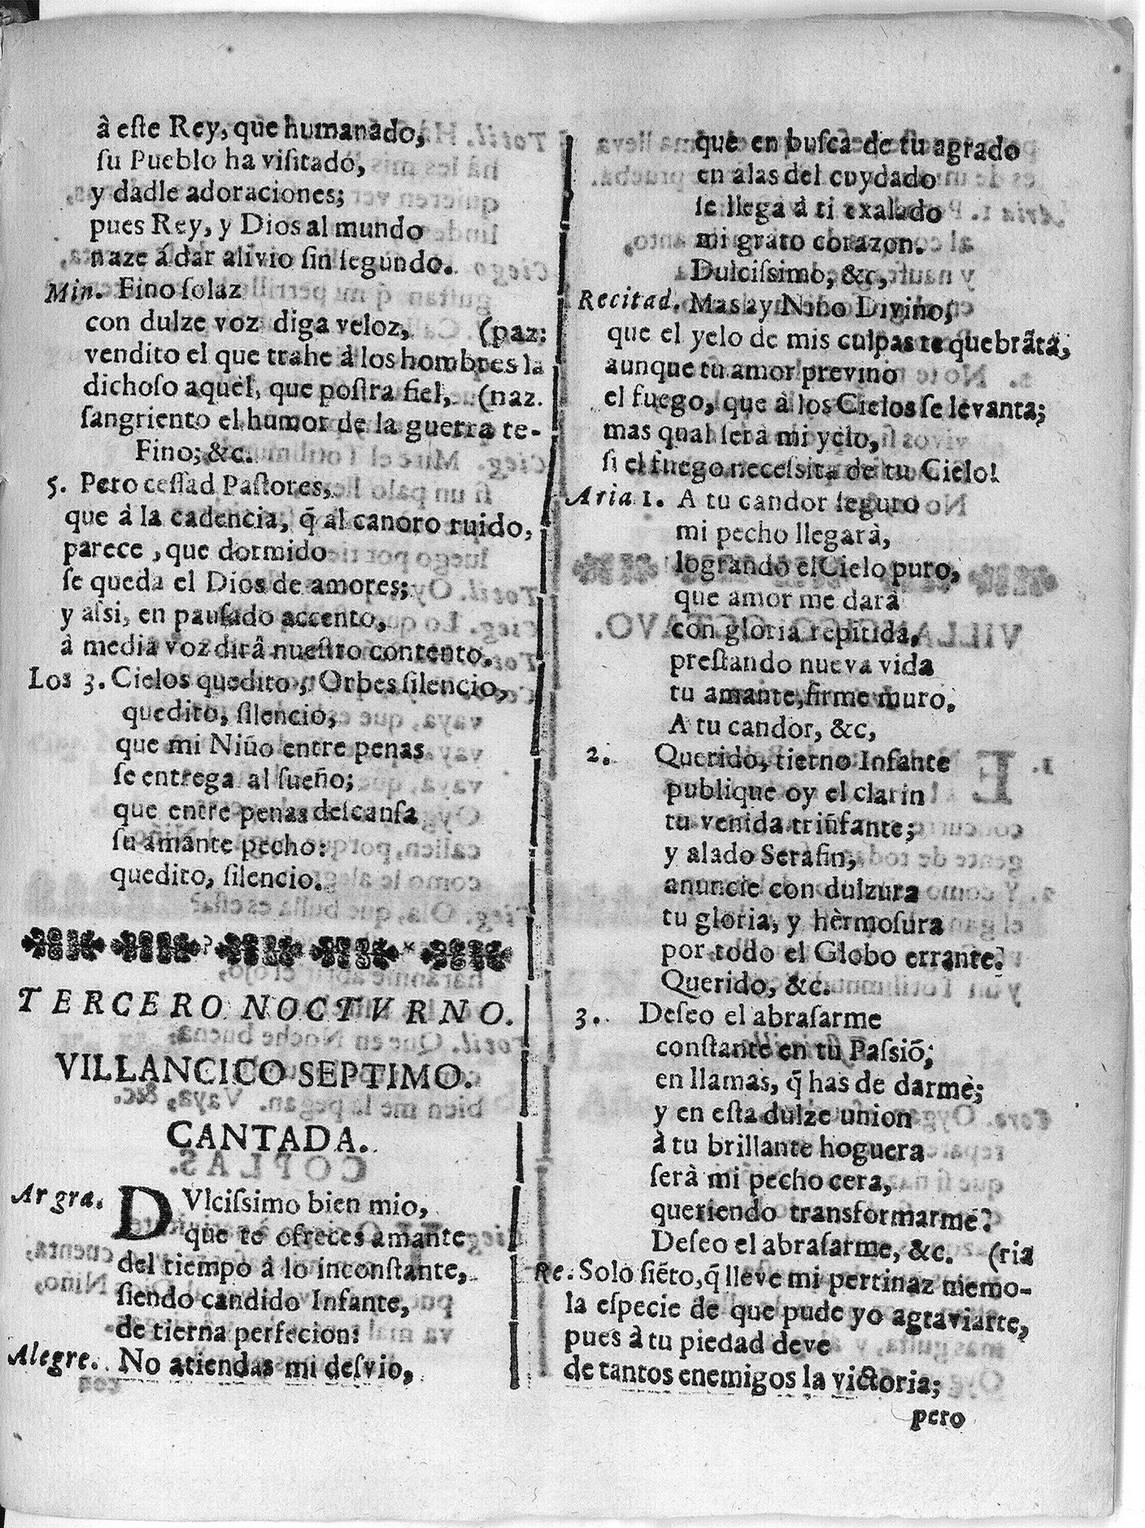 à este Rey, que humanado,
su Pueblo ha visitado,
y dadle adoraciones;
pues Rey, y Dios al mundo
naze à dar alivio sin segundo.
Min. Fino solaz
con dulze voz diga veloz, (paz:
vendito el que trahe à los hombres la
dichoso aquel, que postra fiel, (naz.
sangriento el humor de la guerra te-
Fino; &c.
5. Pero cessad Pastores,
que à la cadencia, q̃ al canoro ruido,
parece, que dormido
se queda el Dios de amores;
y assi, en pausado accento,
à media voz dirà nuestro contento.
Los 3. Cielos quedito, Orbes silencio,
quedito, silencio,
que mi Niño entre penas
se entrega al sueño;
que entre penas descansa
su amante pecho:
quedito, silencio.
TERCERO NOCTVRNO.
VILLANCICO SEPTIMO.
CANTADA.
Ar gra. DVlcissimo bien mio,
que te ofreces amante
del tiempo à lo inconstante,
siendo candido Infante,
de tierna perfecion:
Alegre. No atiendas mi desvio,
que en busca de tu agrado
en alas del cuydado
se llega à ti exalado
mi grato corazon.
Dulcissimo, &c,
Recitad. Mas ay Niño Divino,
que el yelo de mis culpas te quebrãta,
aunque tu amor previno
el fuego, que à los Cielos se levanta;
mas qual serà mi yelo,
si el fuego necessita de tu Cielo!
Aria 1. A tu candor seguro
mi pecho llegarà,
logrando el Cielo puro,
que amor me darà
con gloria repitida,
prestando nueva vida
tu amante, firme muro.
A tu candor, &c,
2. Querido, tierno Infante
publique oy el clarin
tu venida triũfante;
y alado Serafin,
anuncie con dulzura
tu gloria, y hèrmosura
por todo el Globo errante.
Querido, &c.
3. Deseo el abrasarme
constante en tu Passiõ;
en llamas, q̃ has de darme;
y en esta dulze union
à tu brillante hoguera
serà mi pecho cera,
queriendo transformarme?
Deseo el abrasarme, &c. (ria
Re. Solo siẽto, q̃ lleve mi pertinaz memo-
la especie de que pude yo agraviarte,
pues à tu piedad deve
de tantos enemigos la victoria;
pero